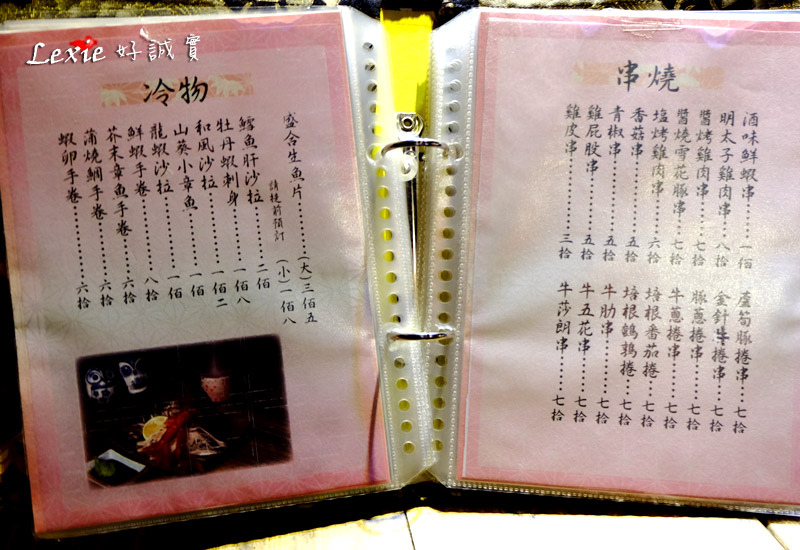 Lexie 好誠實
冷物
盛合生魚片……(大)三佰五
(小)一佰八
請提前預訂
鱈魚肝沙拉……二佰
牡丹蝦刺身……一佰八
和風沙拉……一佰二
山葵小章魚……一佰
龍蝦沙拉……一佰
鮮蝦手卷……八拾
芥末章魚手卷……六拾
蒲燒鯛手卷……六拾
蝦卵手卷……六拾
串燒
酒味鮮蝦串……一佰
明太子雞肉串……八拾
醬烤雞肉串……七拾
醬燒雪花豚串……七拾
塩烤雞肉串……六拾
香菇串……五拾
青椒串……五拾
雞屁股串……五拾
雞皮串……三拾
蘆筍豚捲串……七拾
金針牛捲串……七拾
豚蔥捲串……七拾
牛蔥捲串……七拾
培根番茄捲……七拾
培根鵪鶉捲……七拾
牛肋串……七拾
牛五花串……七拾
牛莎朗串……七拾